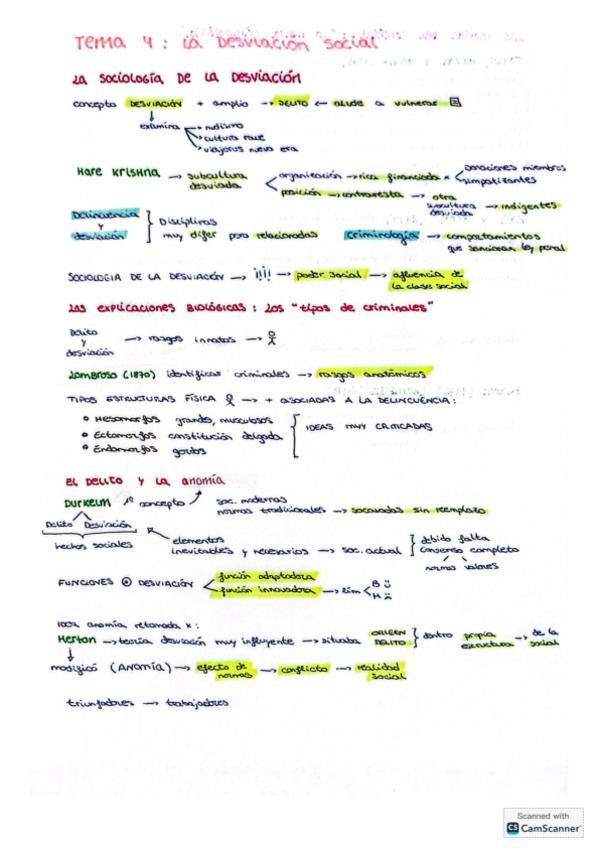 Tema 4: La Desviación Social
La sociología de la desviación
concepto desviación + amplio → delito ← alude a vulnerar
examina → nudismo
→ cultura rave
→ viajeros nueva era
Hare Krishna → subcultura desviada
organización → rica financiada x < donaciones miembros simpatizantes
posición → contrarresta → otra subcultura desviada → indigentes
Delincuencia y desviación } Disciplinas muy difer pero relacionadas
criminología → comportamientos que sancionan ley penal
SOCIOLOGIA DE LA DESVIACIÓN → ¡!!! → poder social → afluencia de la clase social
Las explicaciones BIOLÓGICAS: Los "tipos de criminales"
Delito y desviación → rasgos innatos →
Lombroso (1870) identificar criminales → rasgos anatómicos
TIPOS ESTRUCTURAS FÍSICA → + ASOCIADAS A LA DELINCUENCIA:
Mesomorfos grandes, musculosos
Ectomorfos constitución delgada
Endomorfos gordos
IDEAS MUY CRITICADAS
El Delito y la anomía
Durkeim 1º concepto
soc. modernas
normas tradicionales → socavadas sin reemplazo
Delito Desviación
hechos sociales
elementos
inevitables y necesarios → soc. actual } debido falta
consenso completo
normas valores
FUNCIONES DESVIACIÓN < función adaptadora
función innovadora → lim < B
M
100% anomía retomada x:
Merton → teoría desviación muy influyente → situaba ORIGEN DELITO } dentro propia estructura → de la social
modificó (ANOMÍA) → efecto de normas → conflicto → realidad social
triunfadores → trabajadores
Scanned with
CS CamScanner